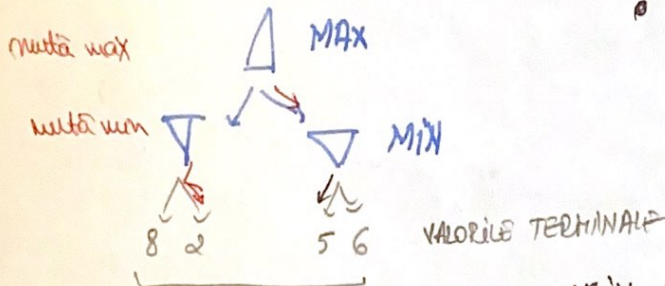 mută max MAX
mută min MIN
8 2 5 6 VALORILE TERMINALE